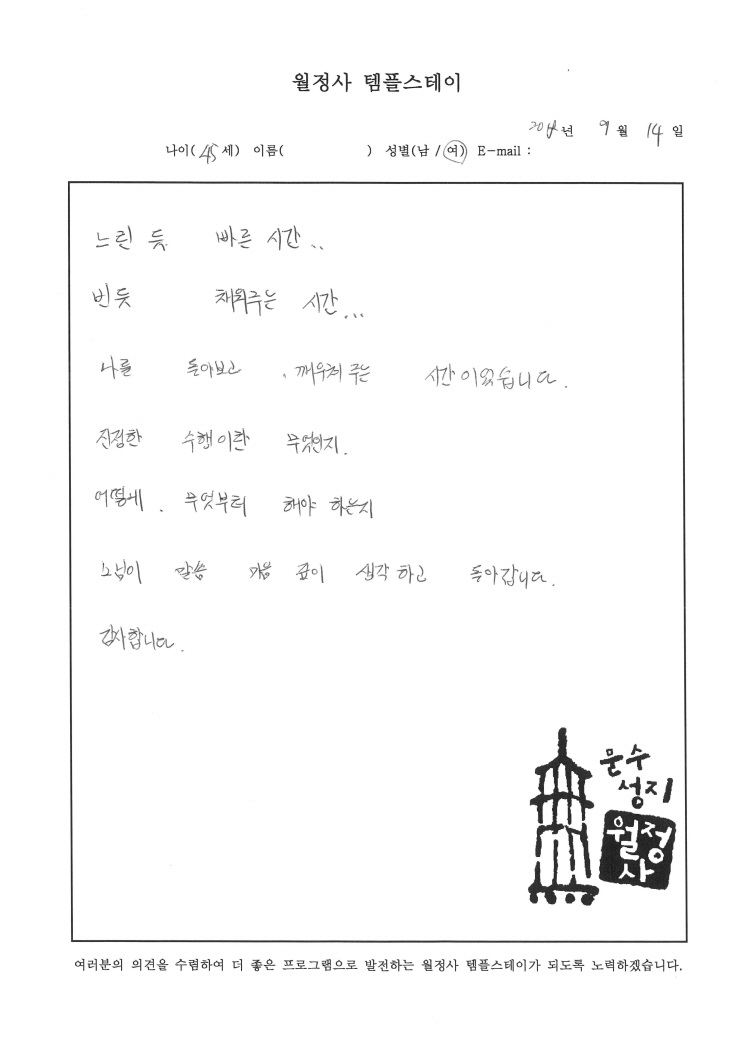 월정사 템플스테이
년 9월 14일
나이(45세) 이름( ) 성별(남 / 여) E-mail :
느린 듯 빠른 시간..
빈듯 채워주는 시간...
나를 돌아보고, 깨우쳐 주는 시간이었습니다.
진정한 수행이란 무엇인지.
어떻게. 무엇부터 해야 하는지
말씀 깊이 생각하고 돌아갑니다.
감사합니다.
문수
성지
월정
사
여러분의 의견을 수렴하여 더 좋은 프로그램으로 발전하는 월정사 템플스테이가 되도록 노력하겠습니다.